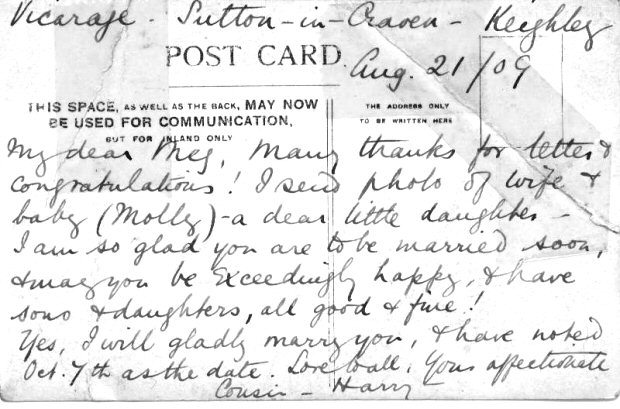 Vicarage - Sutton-in-Craven - Keighley
POST CARD.
Aug. 21/09
THIS SPACE, AS WELL AS THE BACK, MAY NOW
BE USED FOR COMMUNICATION,
BUT FOR INLAND ONLY
THE ADDRESS ONLY
TO BE WRITTEN HERE
My dear Meg, Many thanks for letter &
congratulations! I send photo of wife &
baby (Molly) - a dear little daughter -
I am so glad you are to be married soon,
& may you be exceedingly happy, & have
sons & daughters, all good & fine!
Yes, I will gladly marry you, & have noted
Oct. 7th as the date. Love to all, Your affectionate
Cousin - Harry